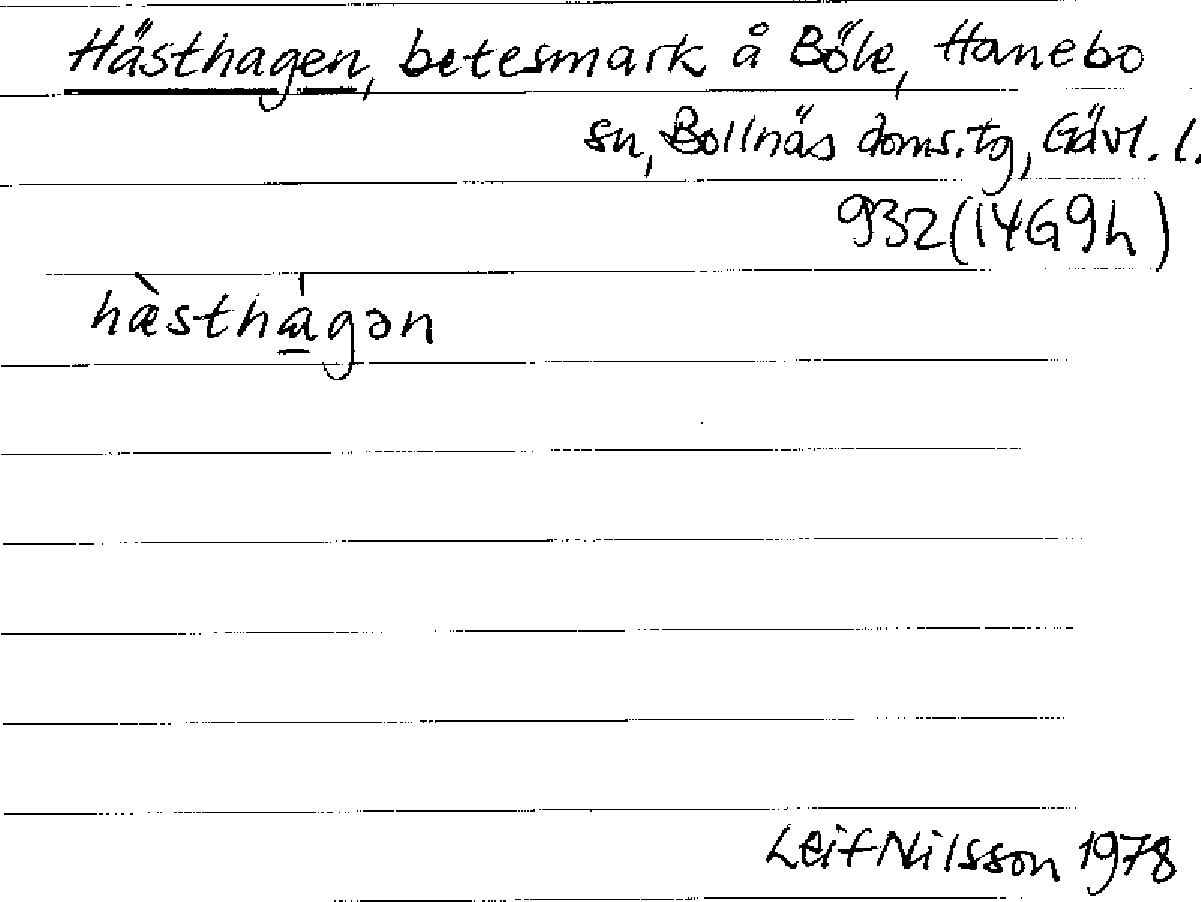 Hästhagen, betesmark å Böle, Hanebo
sn, Bollnäs doms.tg, Gävl. l.
932 (14G9h)
hæ̀stha̱̍gən
Leif Nilsson 1978